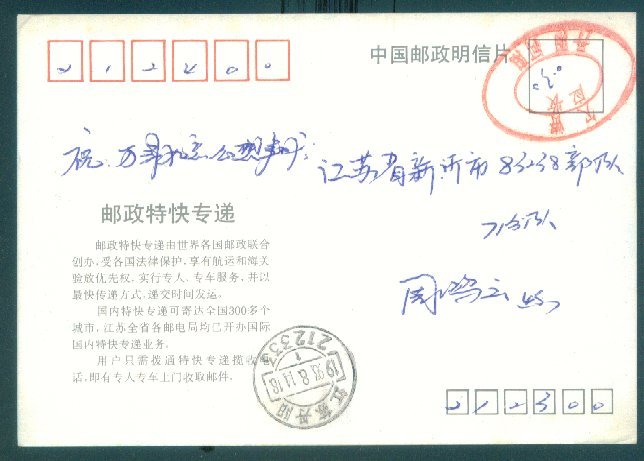 212400
中国邮政明信片
祝:万事如意心想事成!
江苏省新沂市83238部队
邮政特快专递
邮政特快专递由世界各国邮政联合
创办,受各国法律保护,享有航运和海关
验放优先权,实行专人、专车服务,并以
最快传递方式,递交时间发运。
国内特快专递可寄达全国300多个
城市,江苏全省各邮电局均已开办国际
国内特快专递业务。
用户只需拨通特快专递揽收电
话,即有专人专车上门收取邮件。
212333
江苏丹阳
212300